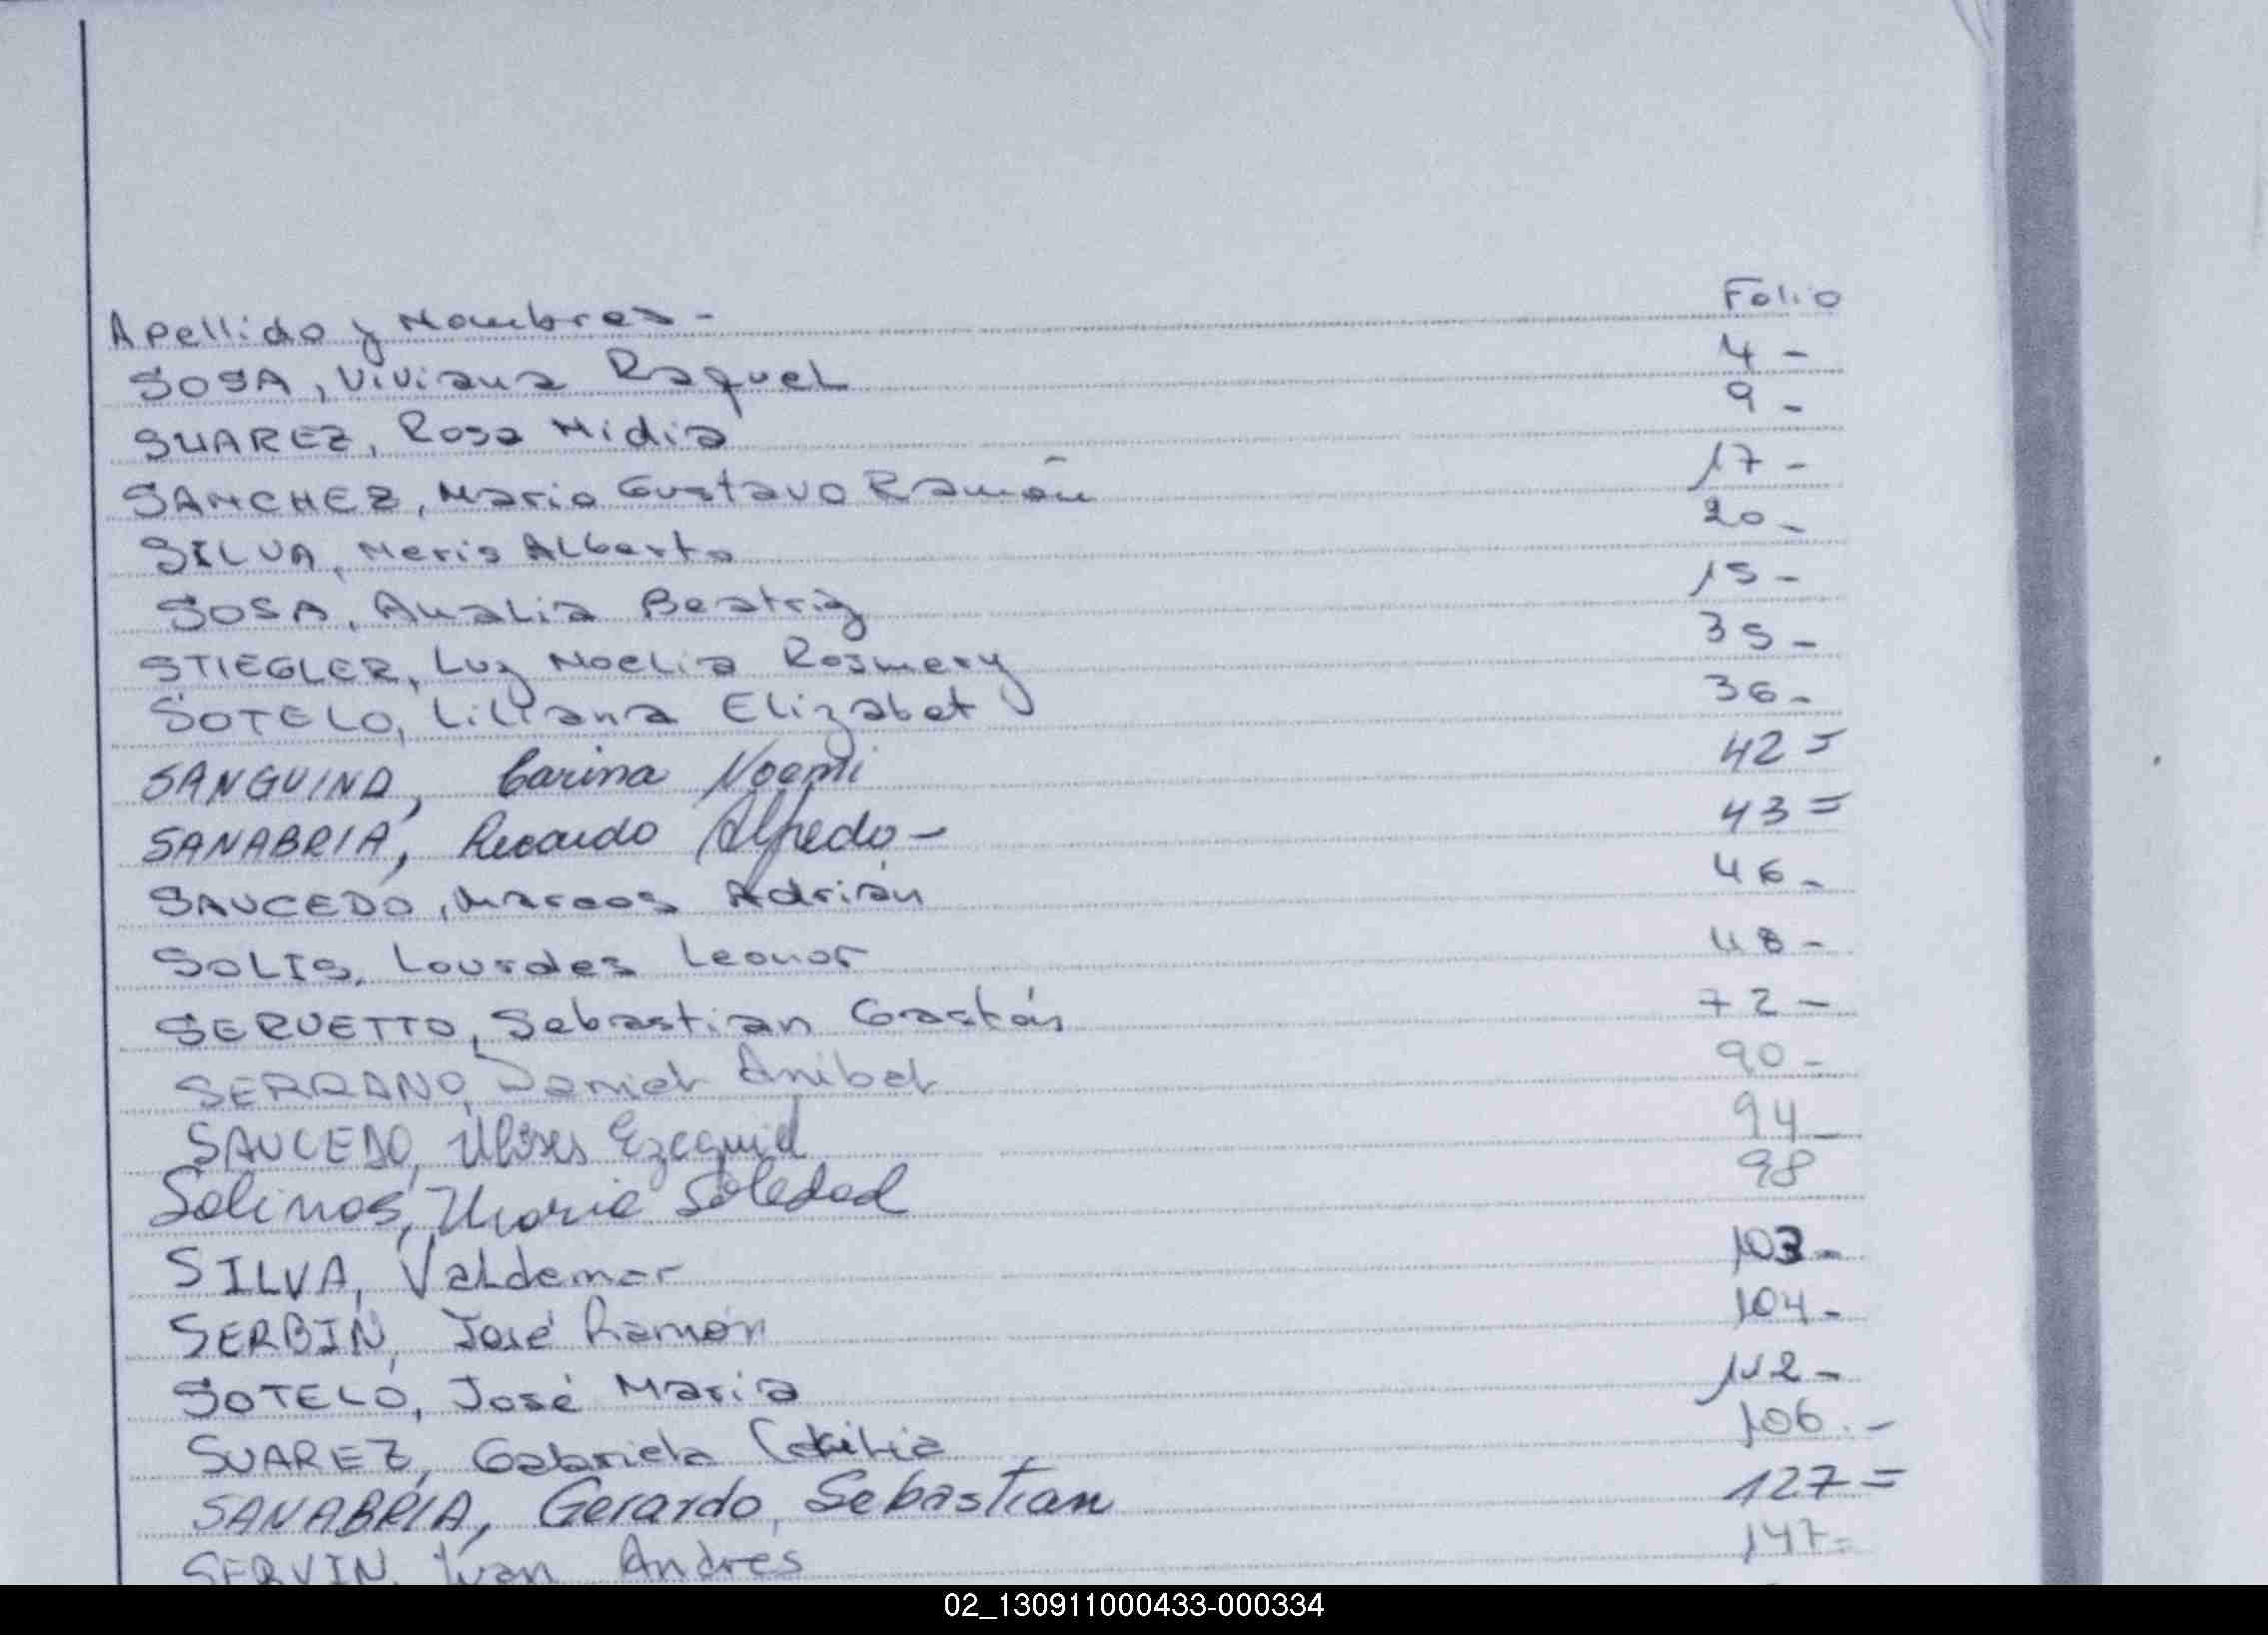 Apellido y Nombres - Folio
SOSA, Viviana Raquel 4 -
SUAREZ, Rosa Nidia 9 -
SANCHEZ, Mario Gustavo Ramón 17 -
SILVA, Neris Alberto 20 -
SOSA, Analia Beatriz 15 -
STIEGLER, Luz Noelia Rosmery 35 -
SOTELO, Liliana Elizabet 36 -
SANGUINA, Carina Noemi 42 =
SANABRIA, Ricardo Alfredo - 43 =
SAUCEDO, Marcos Adrián 46 -
SOLIS, Lourdes Leonor 48 -
SERVETTO, Sebastian Gastón 72 -
SERRANO, Daniel Anibal 90 -
SAUCEDO, Ulises Ezequiel 94 -
Salinas, Maria Soledad 98
SILVA, Valdemar 103 -
SERBIN, José Ramón 104 -
SOTELO, José Maria 112 -
SUAREZ, Gabriela 106. -
SANABRIA, Gerardo Sebastian 127 =
SERVIN, Ivan Andres 147 =
02_130911000433-000334